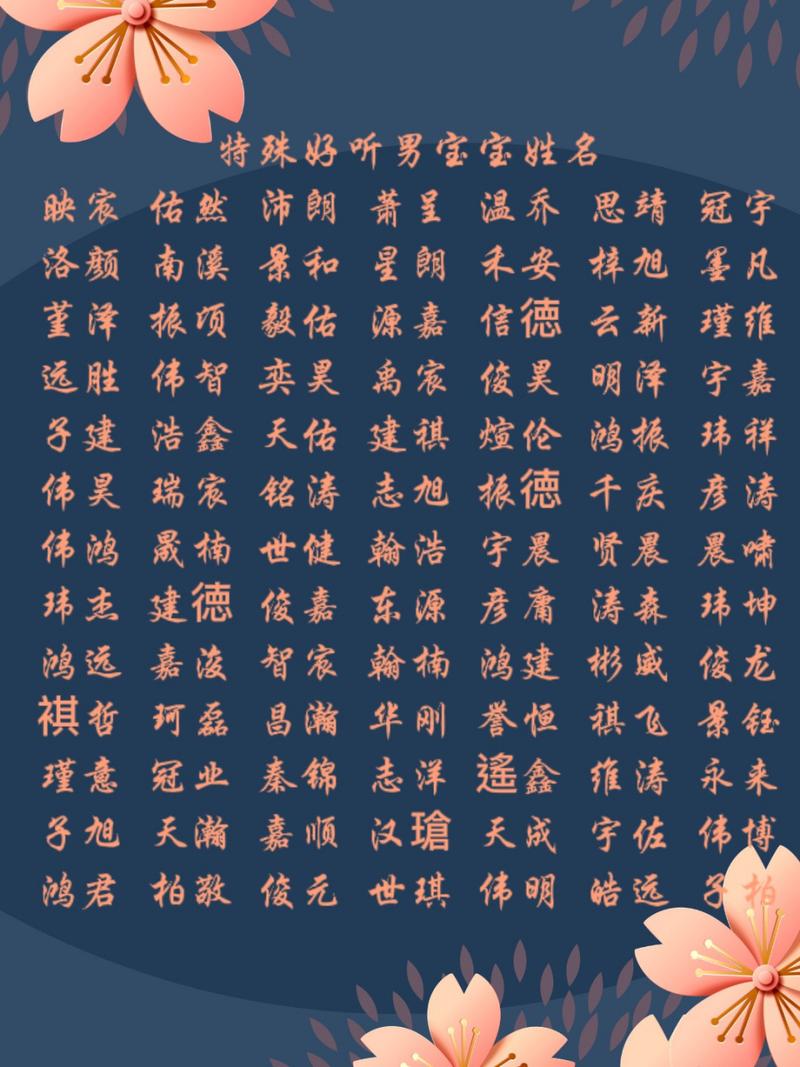 特殊好听男宝宝姓名
映宸 佑然 沛朗 萧呈 温乔 思靖 冠宇
洛颜 南溪 景和 星朗 禾安 梓旭 墨凡
堇泽 振项 毅佑 源嘉 信德 云新 瑾维
远胜 伟智 奕昊 禹宸 俊昊 明泽 宇嘉
子建 浩鑫 天佑 建祺 煊伦 鸿振 玮祥
伟昊 瑞宸 铭涛 志旭 振德 千庆 彦涛
伟鸿 晟楠 世健 翰浩 宇晨 贤晨 晨啸
玮杰 建德 俊嘉 东源 彦庸 涛森 玮坤
鸿远 嘉浚 智宸 翰楠 鸿建 彬威 俊龙
褀哲 珂磊 昌瀚 华刚 誉恒 祺飞 景钰
瑾意 冠业 秦锦 志洋 遙鑫 维涛 永来
子旭 天瀚 嘉顺 汉瑲 天成 宇佐 伟博
鸿君 拍敬 俊元 世琪 伟明 皓远 子拍